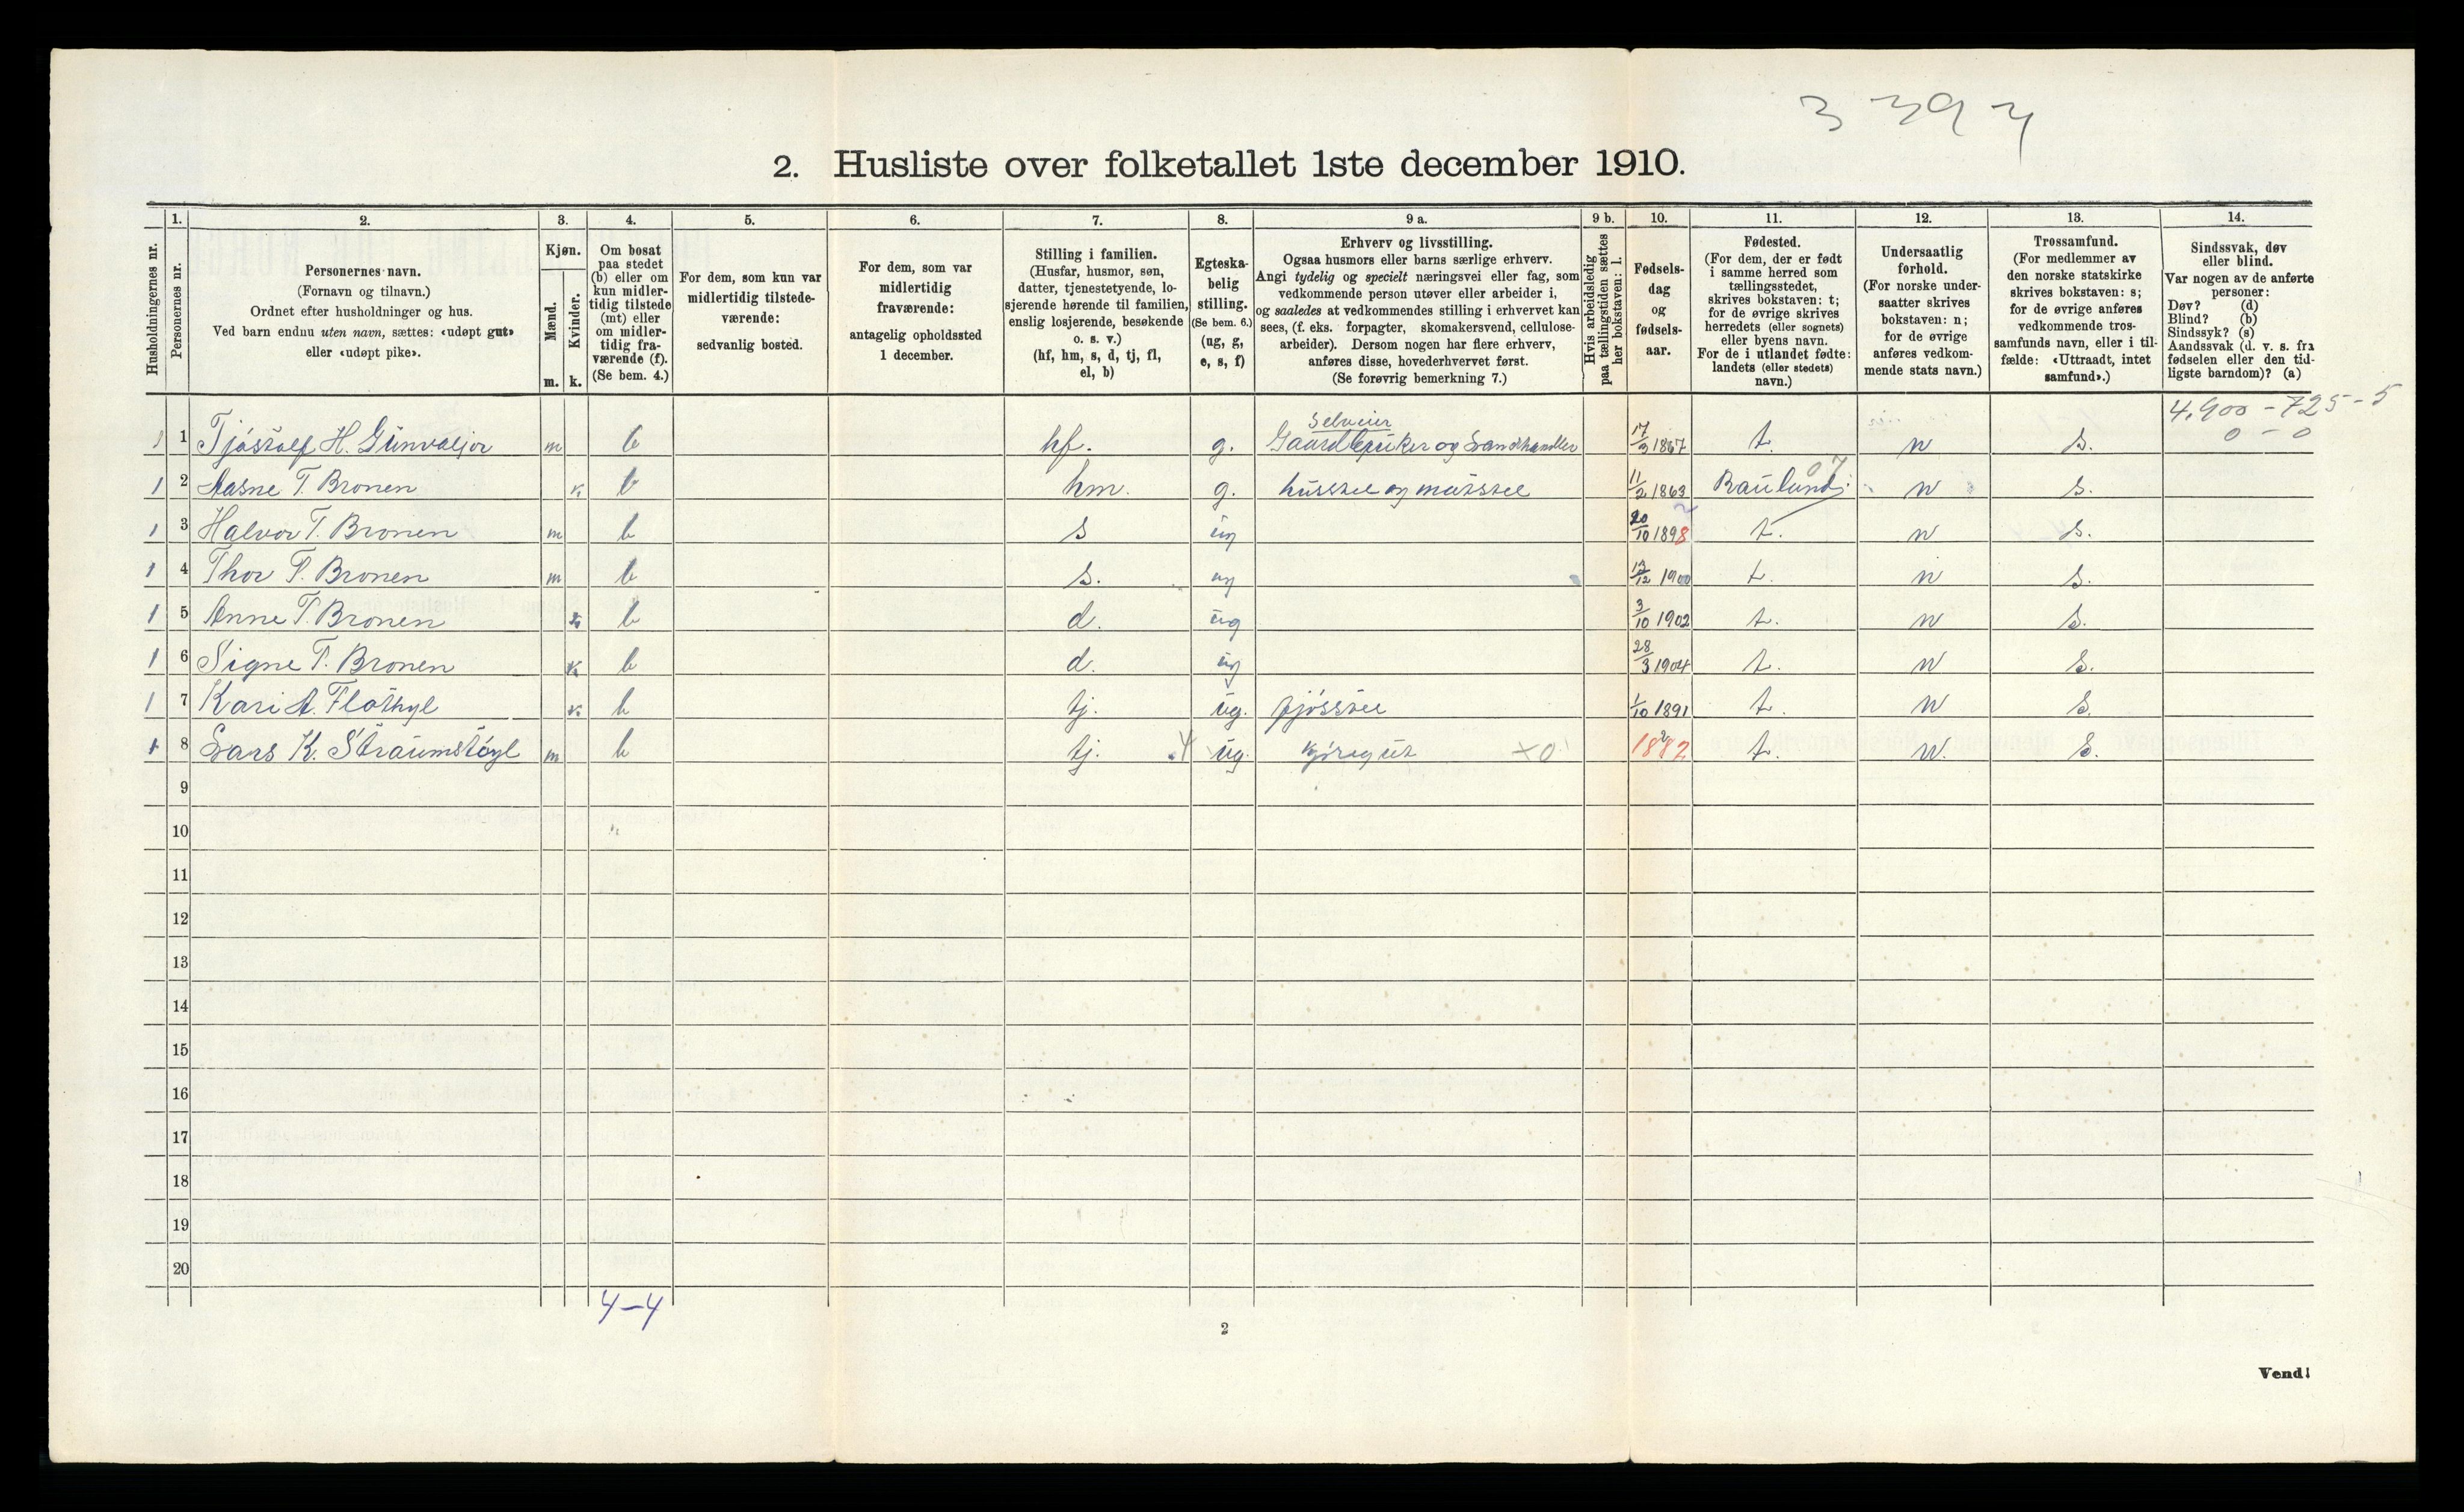 3 39
2. Husliste over folketallet 1ste december 1910.
1. 2. 3. 4. 5. 6. 7. 8. 9 a. 9 b. 10. 11. 12. 13. 14.
Husholdningernes nr.
Personernes nr.
Personernes navn.
(Fornavn og tilnavn.)
Ordnet efter husholdninger og hus.
Ved barn endnu uten navn, sættes: «udøpt gut»
eller «udøpt pike».
Kjøn.
Mænd.
Kvinder.
m. k.
Om bosat
paa stedet
(b) eller om
kun midler-
tidig tilstede
(mt) eller
om midler-
tidig fra-
værende (f).
(Se bem. 4.)
For dem, som kun var
midlertidig tilstede-
værende:
sedvanlig bosted.
For dem, som var
midlertidig
fraværende:
antagelig opholdssted
1 december.
Stilling i familien.
(Husfar, husmor, søn,
datter, tjenestetyende, lo-
sjerende hørende til familien,
enslig losjerende, besøkende
o. s. v.)
(hf, hm, s, d, tj, fl,
el, b)
Egteska-
belig
stilling.
(Se bem. 6.)
(ug, g,
e, s, f)
Erhverv og livsstilling.
Ogsaa husmors eller barns særlige erhverv.
Angi tydelig og specielt næringsvei eller fag, som
vedkommende person utøver eller arbeider i,
og saaledes at vedkommendes stilling i erhvervet kan
sees, (f. eks. forpagter, skomakersvend, cellulose-
arbeider). Dersom nogen har flere erhverv,
anføres disse, hovederhvervet først.
(Se forøvrig bemerkning 7.)
Hvis arbeidsledig
paa tællingstiden sættes
her bokstaven: l.
Fødsels-
dag
og
fødsels-
aar.
Fødested.
(For dem, der er født
i samme herred som
tællingsstedet,
skrives bokstaven: t;
for de øvrige skrives
herredets (eller sognets)
eller byens navn.
For de i utlandet fødte:
landets (eller stedets)
navn.)
Undersaatlig
forhold.
(For norske under-
saatter skrives
bokstaven: n;
for de øvrige
anføres vedkom-
mende stats navn.)
Trossamfund.
(For medlemmer av
den norske statskirke
skrives bokstaven: s;
for de øvrige anføres
vedkommende tros-
samfunds navn, eller i til-
fælde: «Uttraadt, intet
samfund».)
Sindssvak, døv
eller blind.
Var nogen av de anførte
personer:
Døv? (d)
Blind? (b)
Sindssyk? (s)
Aandssvak (d. v. s. fra
fødselen eller den tid-
ligste barndom)? (a)
4,900 - 725 - 5
0 - 0
Selveier
1 1 Tjóstolf H. Gunvaljor m b hf. g. Gaardbruker og Landhandler 17/3 1867 t. n s.
1 2 Aasne T. Bronen k b hm. g. husstel og matstel 11/2 1863 Rauland n s.
1 3 Halvor T. Bronen m b s ug 20/10 1898 t. n s.
1 4 Thor T. Bronen m b s. ug 13/12 1900 t. n s.
1 5 Anne T. Bronen k b d. ug 3/10 1902 t. n s.
1 6 Signe T. Bronen k b d. ug 28/3 1904 t. n s.
1 7 Kari A. Flothyl k b tj. ug. fjósstel 1/10 1891 t. n s.
1 8 Lars K. Straumstøyl m b tj. ug. kjøregut x0 1882 t. n. s.
9
10
11
12
13
14
15
16
17
18
19
20
4-4
2
Vend!